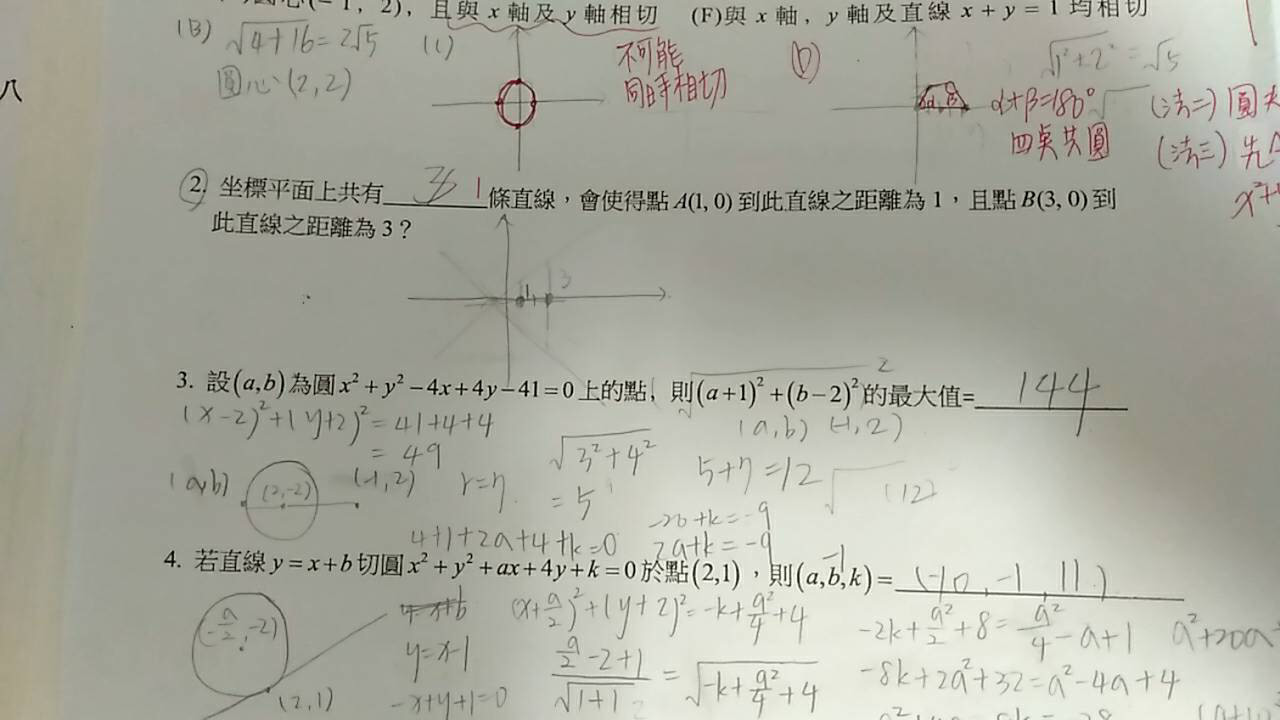 (-1, 2)，且與 x 軸及 y 軸相切 (F)與 x 軸，y 軸及直線 x + y = 1 均相切
(B) √4+16 = 2√5 (C) 不可能 (D) √1²+2² = √5
圓心(2,2) 同時相切 α+β=180° (法二) 圓
四點共圓 (法三) 先
八
2. 坐標平面上共有 3 1 條直線，會使得點 A(1, 0) 到此直線之距離為 1，且點 B(3, 0) 到
此直線之距離為 3？
1 3
3. 設(a,b)為圓 x² + y² − 4x + 4y − 41 = 0 上的點，則(a+1)² + (b−2)² 的最大值= 144
(x-2)²+(y+2)² = 41+4+4 (a,b) (-1,2)
= 49 √3²+4² 5+7=12
(a,b) (2,-2) (-1,2) r=7 = 5 √ (12)
4+1+2a+4+k=0 -20+k=-9
2a+k=-9
4. 若直線 y = x + b 切圓 x² + y² + ax + 4y + k = 0 於點(2,1)，則(a,b,k) = (-10, -1, 11)
-1
(-a/2, -2) y=x+b (x+a/2)²+(y+2)²=-k+a²/4+4 -2k+a²/2+8=a²/4-a+1 a²+20a
y=x-1 a/2-2+1 / √1+1 = √-k+a²/4+4 -8k+2a²+32=a²-4a+4
(2,1) -x+y+1=0